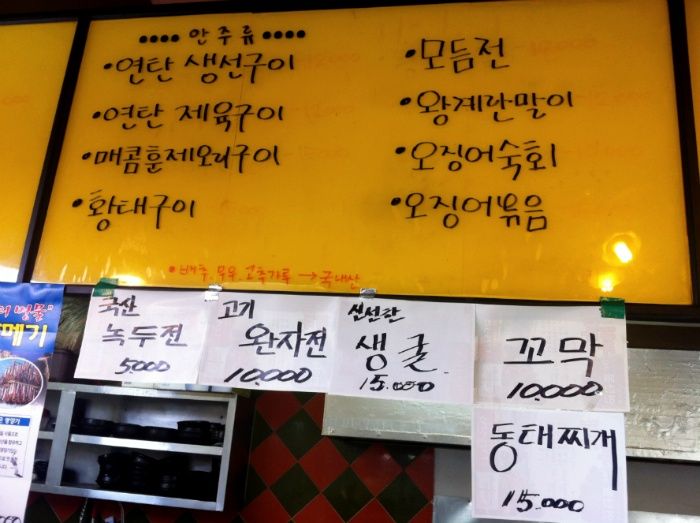 안주류
•연탄 생선구이
•연탄 제육구이
•매콤훈제오리구이
•황태구이
•모듬전
•왕계란말이
•오징어숙회
•오징어볶음
•배추, 무우, 고추가루 → 국내산
국산
녹두전
5000
고기
완자전
10,000
신선한
생굴
15.000
꼬막
10,000
동태찌개
15.000
메기